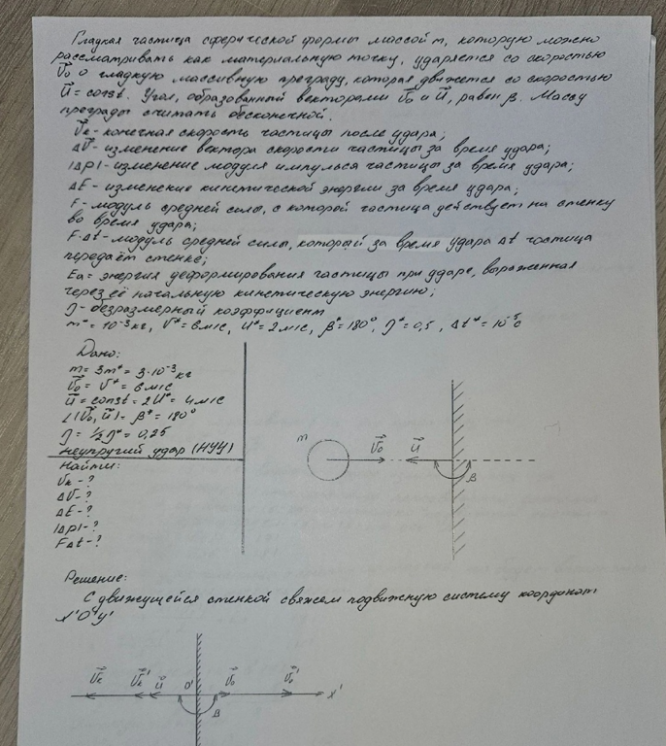 Гладкая частица сферической формы массой m, которую можно
рассматривать как материальную точку, ударяется со скоростью
V̄₀ о гладкую массивную преграду, которая движется со скоростью
ū = const. Угол, образованный векторами V̄₀ и ū, равен β. Массу
преграды считать бесконечной.
Vк - конечная скорость частицы после удара;
ΔV̄ - изменение вектора скорости частицы за время удара;
|Δp| - изменение модуля импульса частицы за время удара;
ΔE - изменение кинетической энергии за время удара;
F - модуль средней силы, с которой частица действует на стенку
во время удара;
F·Δt - модуль средней силы, который за время удара Δt частица
передаёт стенке;
Eд = энергия деформирования частицы при ударе, выраженная
через её начальную кинетическую энергию;
η - безразмерный коэффициент
m* = 10⁻³кг, V* = 6м/с, U* = 2м/с, β* = 180°, η* = 0,5, Δt* = 10⁻⁵с
Дано:
m = 3m* = 3·10⁻³кг
V̄₀ = V* = 6м/с
ū = const = 2U* = 4м/с
∠(V̄₀, ū) = β* = 180°
η = ½η* = 0,25
неупругий удар (НУУ)
Найти:
Vк - ?
ΔV - ?
ΔE - ?
|Δp| - ?
FΔt - ?
m V̄₀ ū β
Решение:
С движущейся стенкой свяжем подвижную систему координат
X'O'Y'
V̄к V̄к' ū O' V̄₀ V̄₀' X'
β